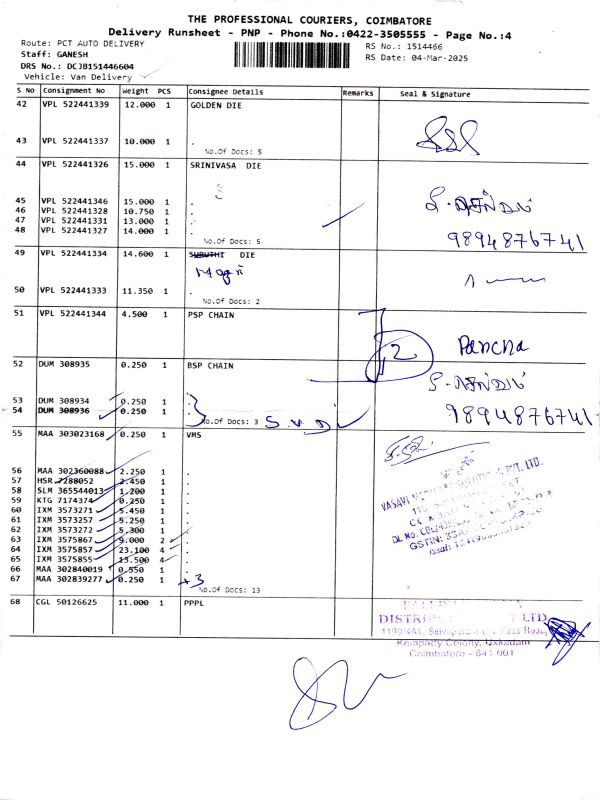 THE PROFESSIONAL COURIERS, COIMBATORE
Delivery Runsheet - PNP - Phone No.:0422-3505555 - Page No.:4
Route: PCT AUTO DELIVERY RS No.: 1514466
Staff: GANESH RS Date: 04-Mar-2025
DRS No.: DCJB151446604
Vehicle: Van Delivery
S No Consignment No Weight PCS Consignee Details Remarks Seal & Signature
42 VPL 522441339 12.000 1 GOLDEN DIE
43 VPL 522441337 10.000 1 .
No.Of Docs: 5
44 VPL 522441326 15.000 1 SRINIVASA DIE
45 VPL 522441346 15.000 1 .
46 VPL 522441328 10.750 1 .
47 VPL 522441331 13.000 1 .
48 VPL 522441327 14.000 1 .
No.Of Docs: 5
9894876741
49 VPL 522441334 14.600 1 SURUTHI DIE
50 VPL 522441333 11.350 1 .
No.Of Docs: 2
51 VPL 522441344 4.500 1 PSP CHAIN
2 Pancha
52 DUM 308935 0.250 1 BSP CHAIN
53 DUM 308934 0.250 1
54 DUM 308936 0.250 1
No.Of Docs: 3
9894876741
55 MAA 303023168 0.250 1 VMS
56 MAA 302360088 2.250 1 .
57 HSR 7288052 2.450 1 .
58 SLM 365544013 1.200 1 .
59 KTG 7174374 0.250 1 .
60 IXM 3573271 5.450 1 .
61 IXM 3573257 5.250 1 .
62 IXM 3573272 5.300 1 .
63 IXM 3575867 9.000 2 .
64 IXM 3575857 23.100 4 .
65 IXM 3575855 13.500 4 .
66 MAA 302840019 0.550 1 .
67 MAA 302839277 0.250 1 +3
No.Of Docs: 13
VASAVI PVT. LTD.
68 CGL 50126625 11.000 1 PPPL
LTD
Kempatty Colony, Ukkadam
Coimbatore - 641 001